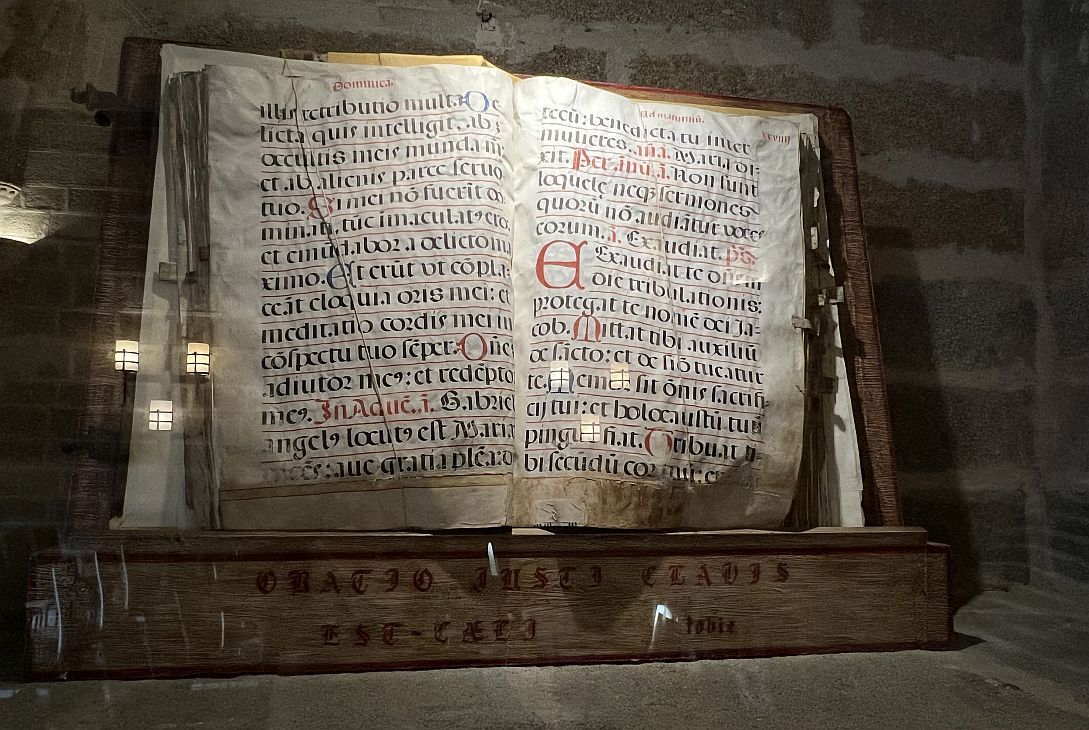 Dominica.
illis retributio multa. De
licta quis intelligit, ab
occultis meis munda me
et ab alienis parce servo
tuo. Si mei nō fuerit do
minati, tūc imaculatꝰ ero
et emūdabor a delicto ma
ximo. Et erūt vt cōpla:
ceāt eloquia oris mei: et
meditatio cordis mei in
cōspectu tuo sēper. Dñe
adiutor meꝰ: et redēpto
meꝰ. In Aduē. ā. Gabriel
angelꝰ locutꝰ est Marie
dicēs: aue gratia plēa: d
Ad matutinū.
xxviiij
tecū: benedicta tu inter
mulieres. aña. Maria di-
xit. Per ānū. ā. Non sunt
loquele neqꝫ sermones
quorū nō audiātur voces
eorum. ā. Exaudiat. ps.
Exaudiat te dñs in
die tribulationis:
protegat te nomē dei Ja-
cob. Mittat tibi auxiliū
de sācto: et de siō tueatur
te. Memor sit ōnis sacrifi-
cij tui: et holocaustū tuū
pingue fiat. Tribuat ti-
bi secūdū cor tuū: et
ORATIO IUSTI CLAVIS
EST-CÆLI tobie